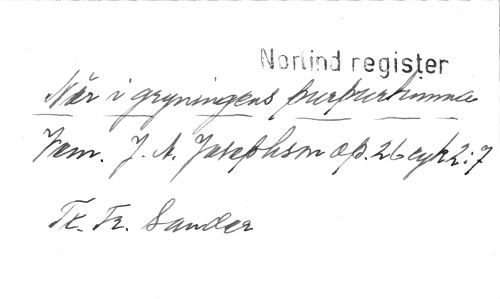 Norlind register
När i gryningens purpurtimma
Kom. J. A. Josephson op. 26 cyk 2:7
Tt. Fr. Sander